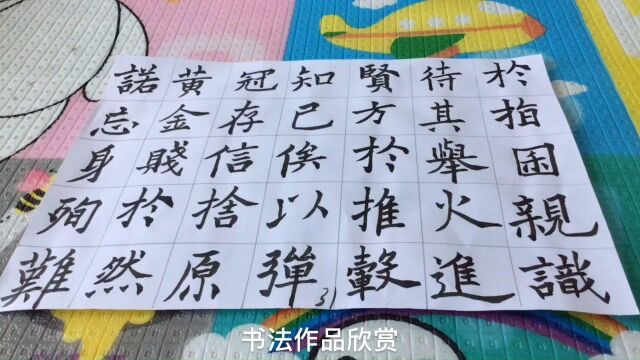 於指困親識
待其舉火進
賢方於推轂
知已俟以彈
冠存信捨原
黄金賤於然
諾忘身殉難
3)
书法作品欣赏